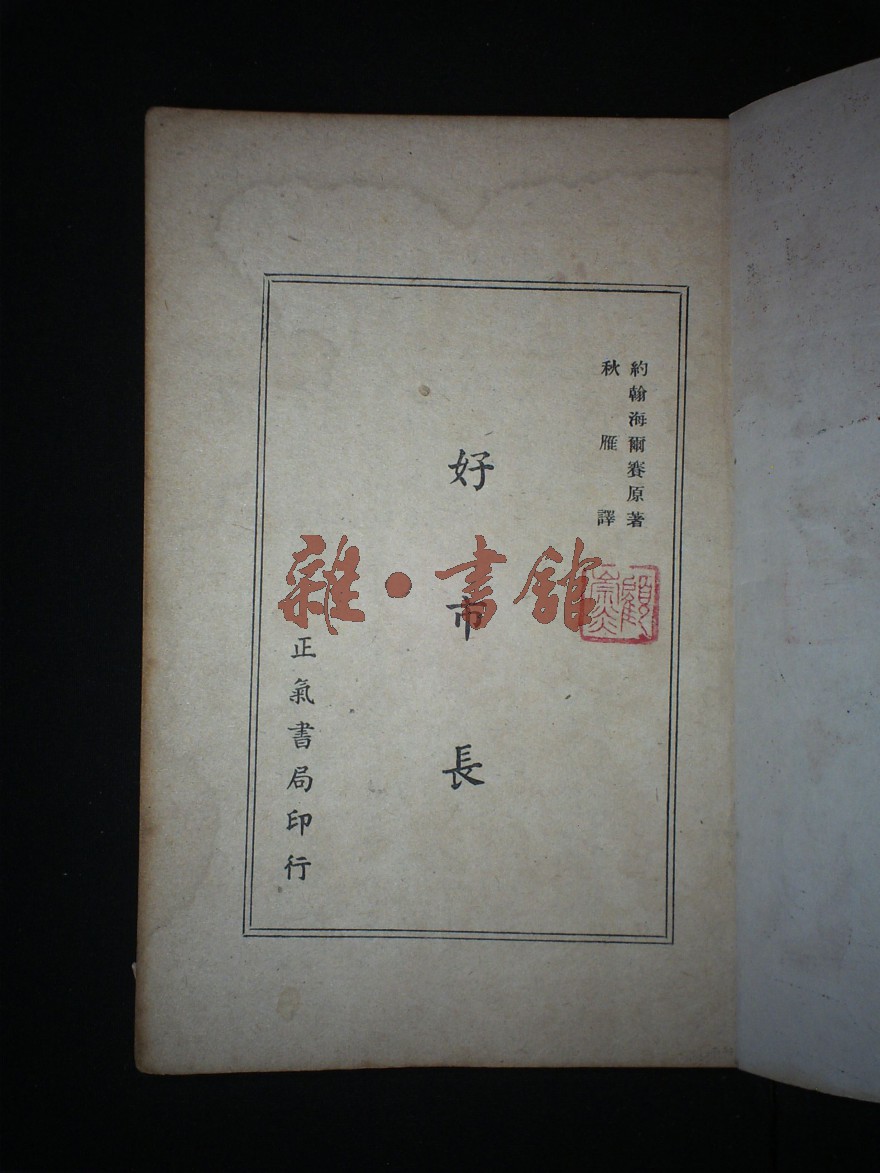 約翰海爾賽原著
秋雁譯
好市長
正氣書局印行
雜·書館